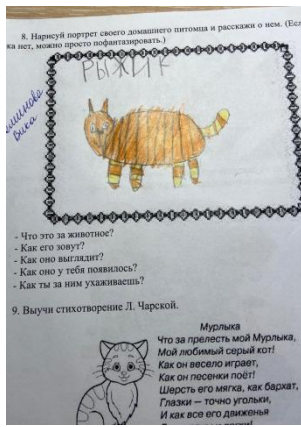 8. Нарисуй портрет своего домашнего питомца и расскажи о нем. (Есл
ка нет, можно просто пофантазировать.)
РЫЖИК
Вика
- Что это за животное?
- Как его зовут?
- Как оно выглядит?
- Как оно у тебя появилось?
- Как ты за ним ухаживаешь?
9. Выучи стихотворение Л. Чарской.
Мурлыка
Что за прелесть мой Мурлыка,
Мой любимый серый кот!
Как он весело играет,
Как он песенки поёт!
Шерсть его мягка, как бархат,
Глазки — точно угольки,
И как все его движенья